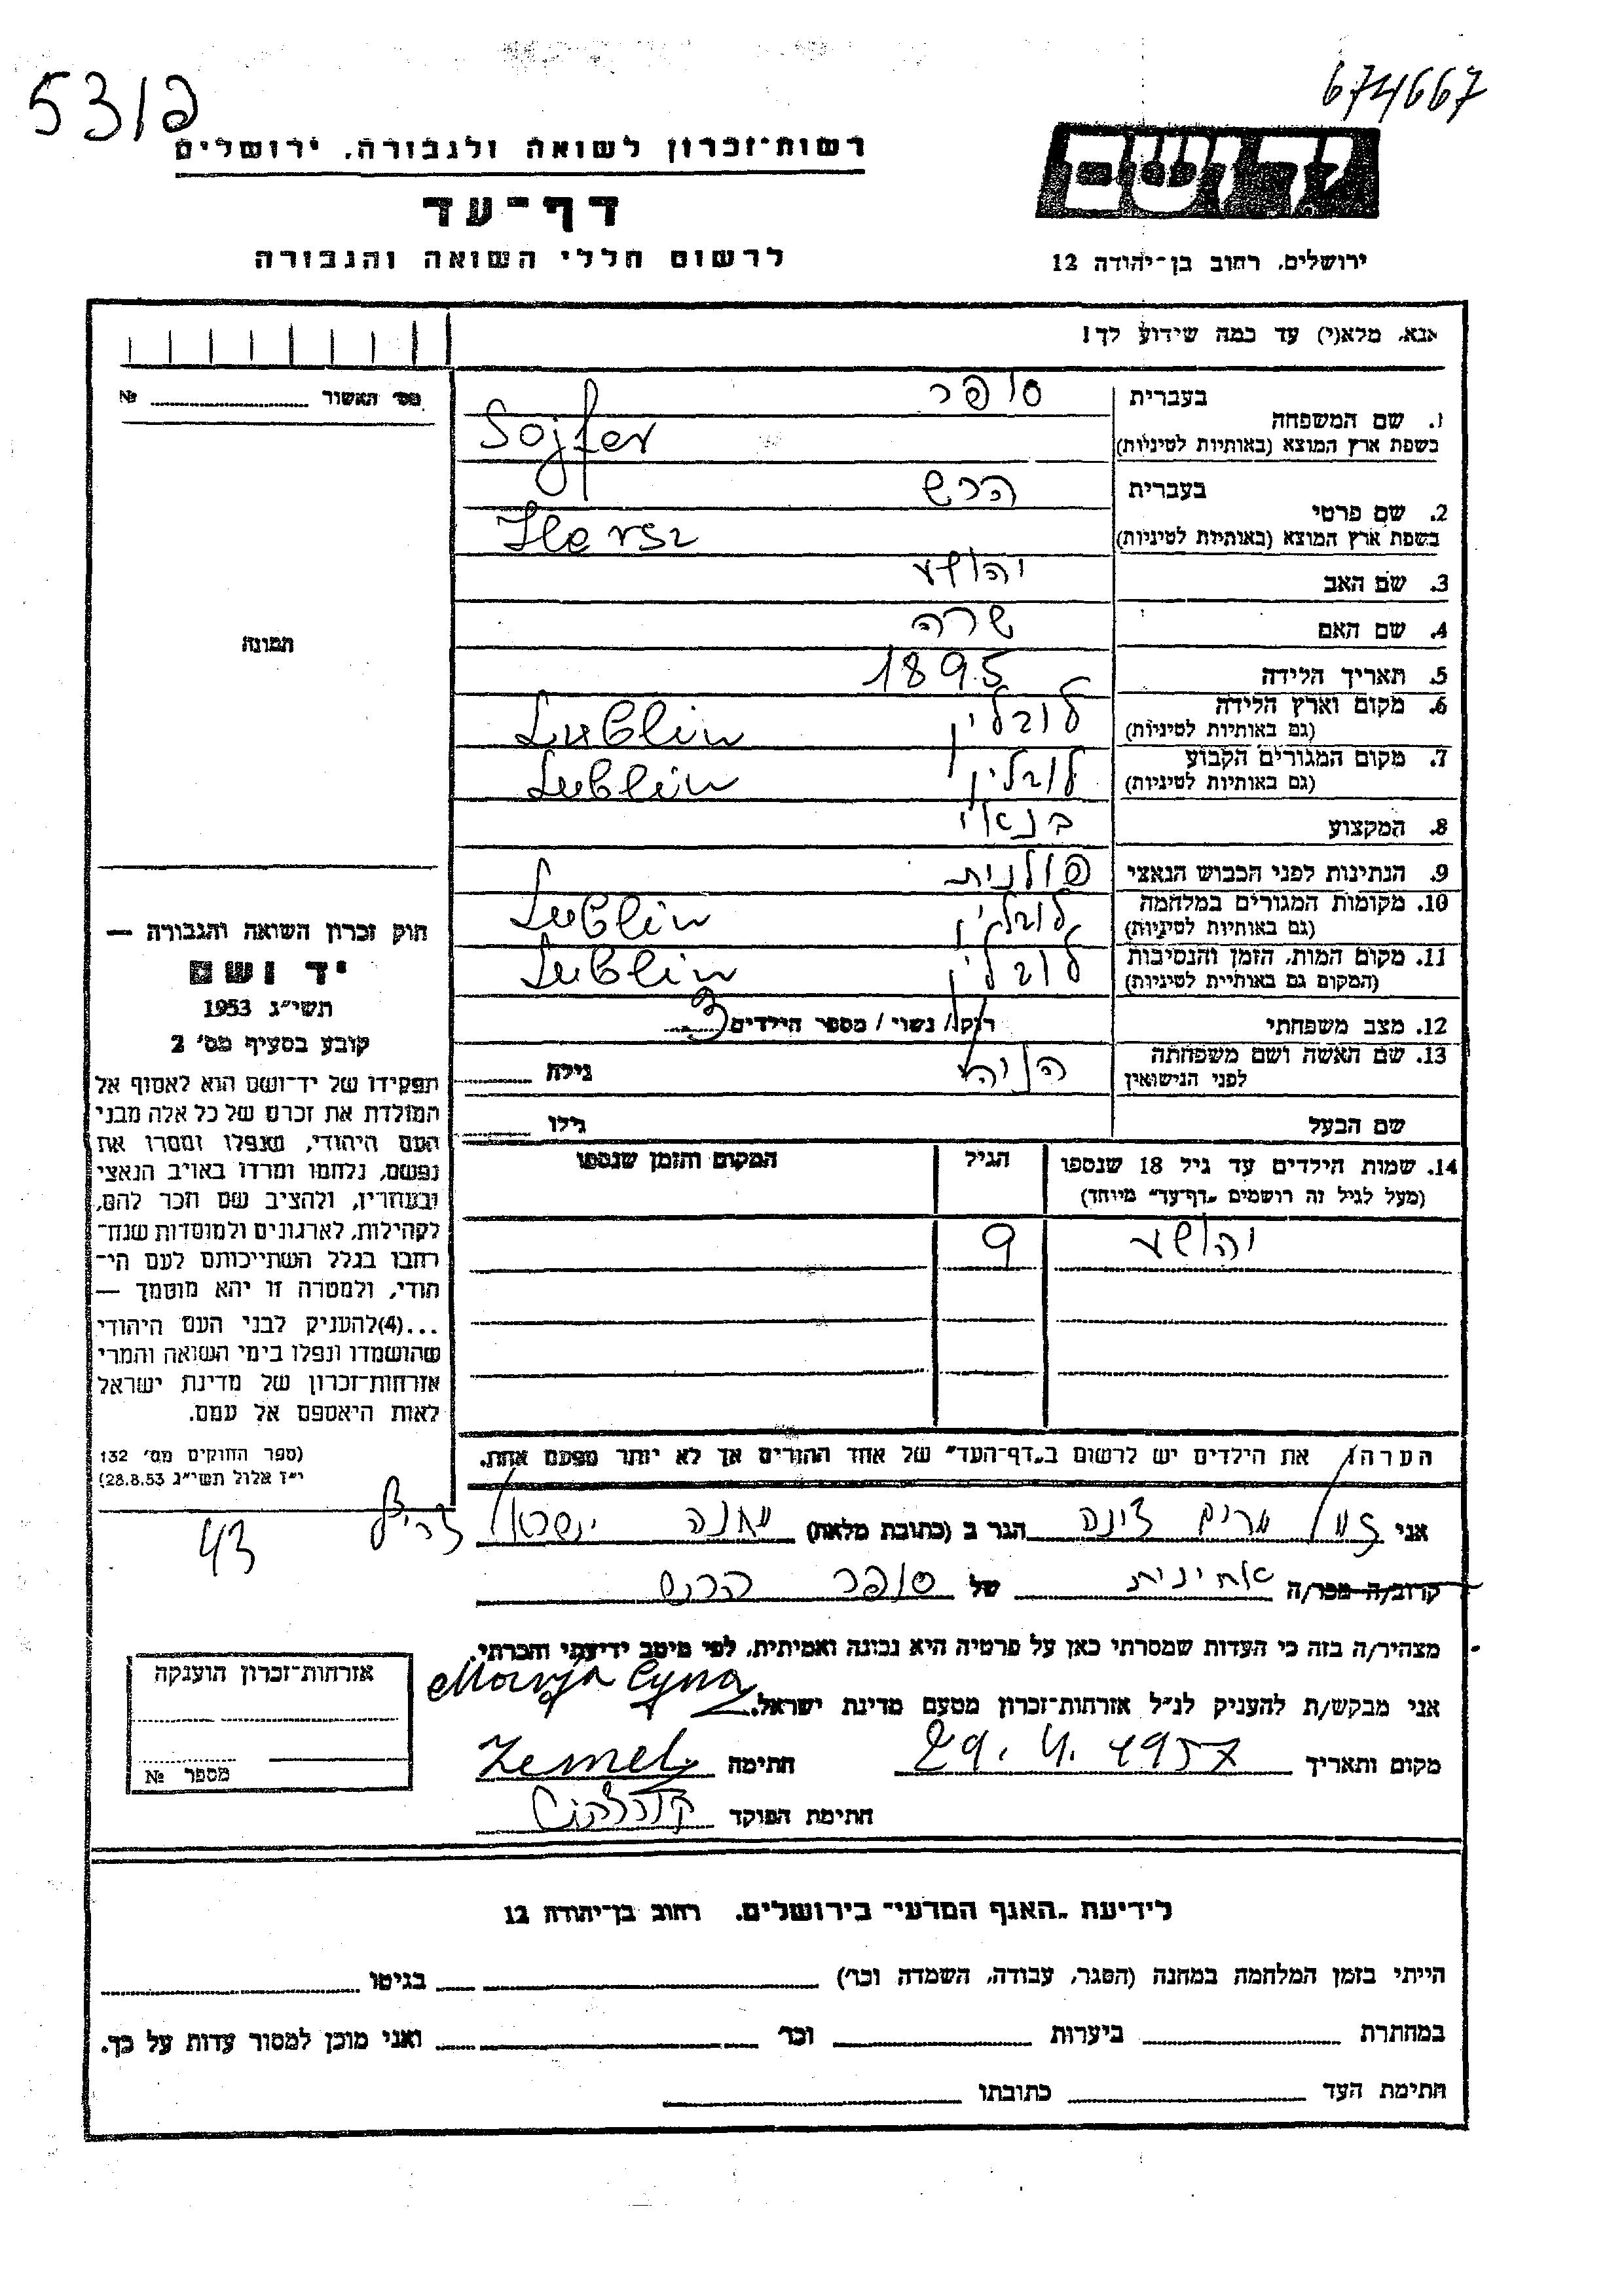 5312
674667
רשות־זכרון לשואה ולגבורה, ירושלים
דף־עד
לרשום חללי השואה והגבורה
יד ושם
ירושלים, רחוב בן־יהודה 12
אנא, מלא(י) עד כמה שידוע לך!
מס׳ האשור № 
בעברית סופר
1. שם המשפחה
בשפת ארץ המוצא (באותיות לטיניות) Sojfer
בעברית הרש
2. שם פרטי
בשפת ארץ המוצא (באותיות לטיניות) Hersz
3. שם האב יהושע
4. שם האם שרה
5. תאריך הלידה 1895
6. מקום וארץ הלידה לובלין Lublin
(גם באותיות לטיניות)
7. מקום המגורים הקבוע לובלין Lublin
(גם באותיות לטיניות)
8. המקצוע בנאי
9. הנתינות לפני הכבוש הנאצי פולנית
10. מקומות המגורים במלחמה לובלין Lublin
(גם באותיות לטיניות)
11. מקום המות, הזמן והנסיבות לובלין Lublin
(המקום גם באותיות לטיניות)
12. מצב משפחתי רוק / נשוי / מספר הילדים 3
13. שם האשה ושם משפחתה
לפני הנישואין גילה
שם הבעל גילו
14. שמות הילדים עד גיל 18 שנספו הגיל המקום והזמן שנספו
(מעל לגיל זה רושמים „דף־עד״ מיוחד)
יהושע 9
הערה: את הילדים יש לרשום ב„דף־העד״ של אחד ההורים אך לא יותר מפעם אחת.
תמונה
חוק זכרון השואה והגבורה —
יד ושם
תשי״ג 1953
קובע בסעיף מס׳ 2
תפקידו של יד־ושם הוא לאסוף אל
המולדת את זכרם של כל אלה מבני
העם היהודי, שנפלו ומסרו את
נפשם, נלחמו ומרדו באויב הנאצי
ובעוזריו, ולהציב שם וזכר להם,
לקהילות, לארגונים ולמוסדות שנח־
רבו בגלל השתייכותם לעם הי־
הודי, ולמטרה זו יהא מוסמך —
...(4)להעניק לבני העם היהודי
שהושמדו ונפלו בימי השואה והמרי
אזרחות־זכרון של מדינת ישראל
לאות היאספם אל עמם.
(ספר החוקים מס׳ 132
י״ז אלול תשי״ג 28.8.53)
אני מרים צינה הגר ב (כתובת מלאה) מחנה ישראל צריף
43
קרוב/ה מכר/ה אחינית של סופר הרש
מצהיר/ה בזה כי העדות שמסרתי כאן על פרטיה היא נכונה ואמיתית, לפי מיטב ידיעתי והכרתי.
אני מבקש/ת להעניק לנ״ל אזרחות־זכרון מטעם מדינת ישראל.
Marja Cyna
מקום ותאריך 29. 4. 1957 חתימה Zemel
חתימת הפוקד
אזרחות־זכרון הוענקה
מספר №
לידיעת „האגף המדעי״ בירושלים, רחוב בן־יהודה 12
הייתי בזמן המלחמה במחנה (הסגר, עבודה, השמדה וכו׳) בגיטו
במחתרת ביערות וכו׳ ואני מוכן למסור עדות על כך.
חתימת העד כתובתו